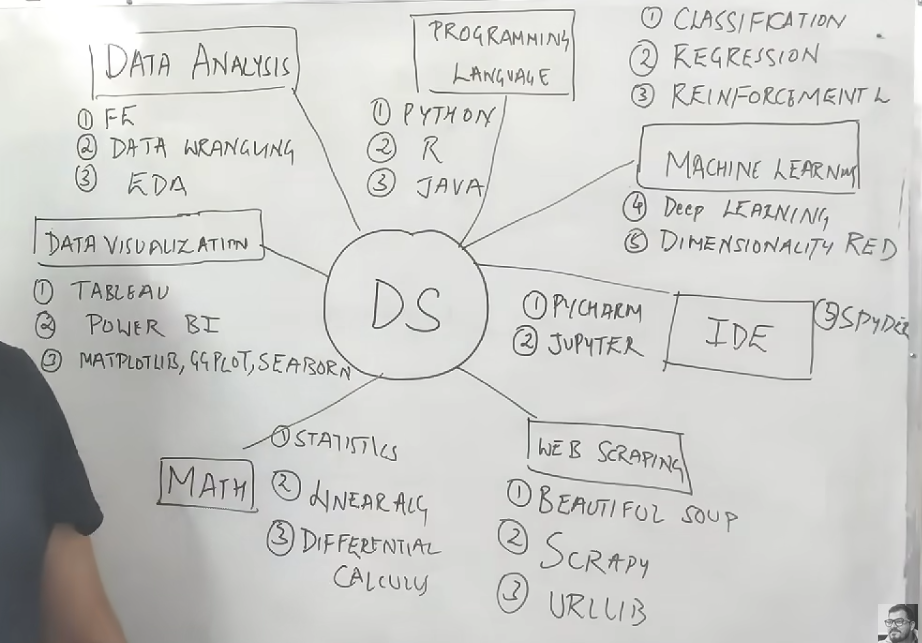 DATA ANALYSIS
① FE
② DATA WRANGLING
③ EDA
PROGRAMMING
LANGUAGE
① PYTHON
② R
③ JAVA
① CLASSIFICATION
② REGRESSION
③ REINFORCEMENT L
MACHINE LEARNING
④ DEEP LEARNING
⑤ DIMENSIONALITY RED
DATA VISUALIZATION
① TABLEAU
② POWER BI
③ MATPLOTLIB, GGPLOT, SEABORN
DS
① PYCHARM
② JUPYTER
IDE
③ SPYDER
MATH
① STATISTICS
② LINEAR ALG
③ DIFFERENTIAL
CALCULUS
WEB SCRAPING
① BEAUTIFUL SOUP
② SCRAPY
③ URLLIB